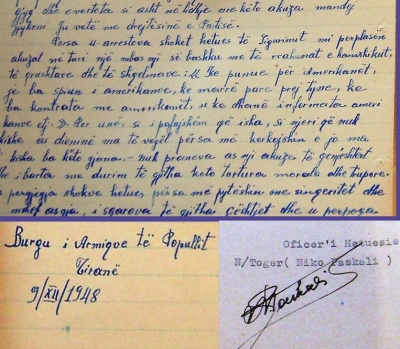 gjyq dhe vërteta si asht në lidhje me këto akuza mandej
gjykoni Ju vetë me drejtësinë e Partisë.
Porsa u-arrestova shokët hetues të Sigurimit më përplasën
akuzat në turi një mbas një së bashku me të rrahunat e kamxhikut,
të grushtave dhe të shqelmave: Ke punue për Amerikanët,
je ba spiun i amerikanve, ke marrë pare prej tyne, ke
ba kontrata me amerikanët, u ke dhanë informata ameri
kanve etj. Por unë, si i pafajshëm që isha, si njeri që nuk
kishe as dieninë ma të vogël përsa më kërkojshin e jo ma
t kisha ba këto gjana, - nuk pranova as një akuzë të gënjeshtërt
dhe i barta me durim të gjitha këto tortura morale dhe trupore.
përgjigja shokve hetues përsa më pyetshin me singeritet dhe
asgja, i sqarova të gjitha çështjet dhe u përpoqa
Burgu i Armiqve të Popullit
Tiranë
9/XII/1948
Oficer'i Hetuesis
N/Toger( Niko Paskali )